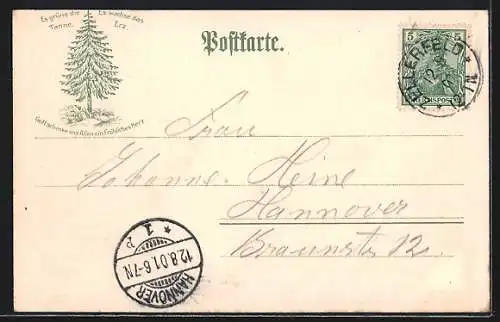 Es grüne die Tanne.
Es wachse das Erz.
Gott schenke uns Allen ein fröhliches Herz
Postkarte.
5 5
REICHSPOST
ZELLERFELD
12 8
Frau
Johanne Heine
Hannover
Braunstr 12.
HANNOVER
12.8.01.6-7N
* 1 P